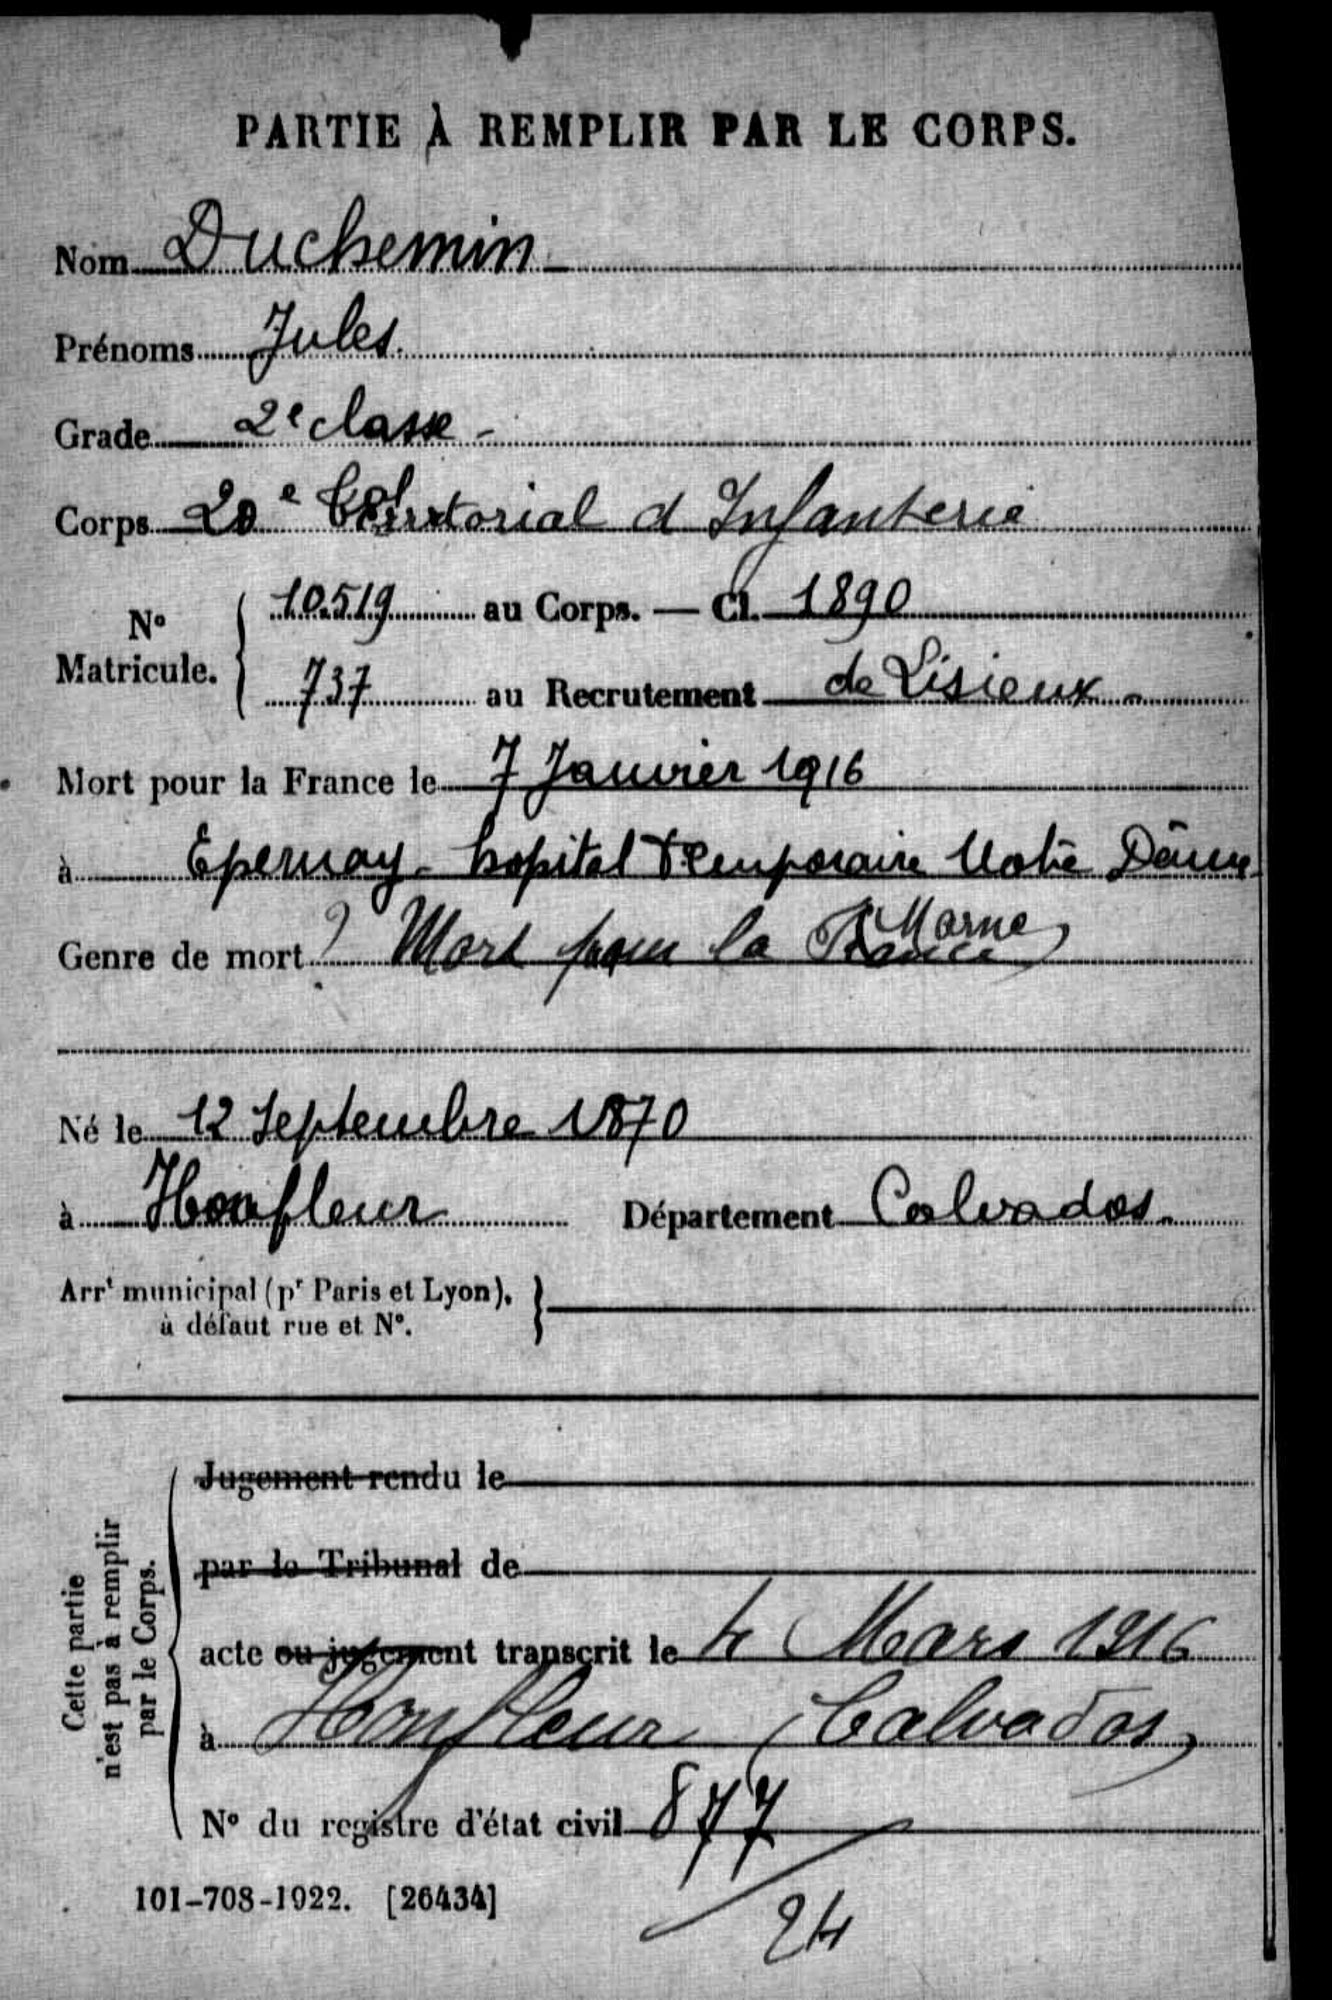 PARTIE À REMPLIR PAR LE CORPS.
Nom Duchemin
Prénoms Jules
Grade 2e classe -
Corps 20e Territorial d Infanterie
No Matricule. { 10.519 au Corps. — Cl. 1890
737 au Recrutement de Lisieux -
Mort pour la France le 7 Janvier 1916
à Epernay - hopital temporaire Notre Dame
(Marne)
Genre de mort ? Mort pour la France
Né le 12 Septembre 1870
à Honfleur Département Calvados.
Arrt municipal (pr Paris et Lyon), }
à défaut rue et No.
Cette partie
n'est pas à remplir
par le Corps.
Jugement rendu le
par le Tribunal de
acte ou jugement transcrit le 4 Mars 1916
à Honfleur (Calvados)
No du registre d'état civil 877/24
101-708-1922. [26434]